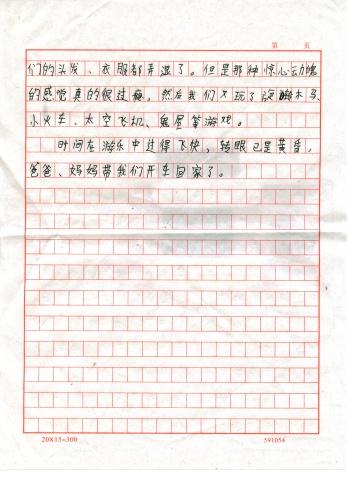 第 页
们的头发、衣服都弄湿了。但是那种惊心动魄
的感觉真的很过瘾。然后我们又玩了旋转木马、
小火车、太空飞机、鬼屋等游戏。
时间在游乐中过得飞快，转眼已是黄昏，
爸爸、妈妈带我们开车回家了。
20X15=300 591054